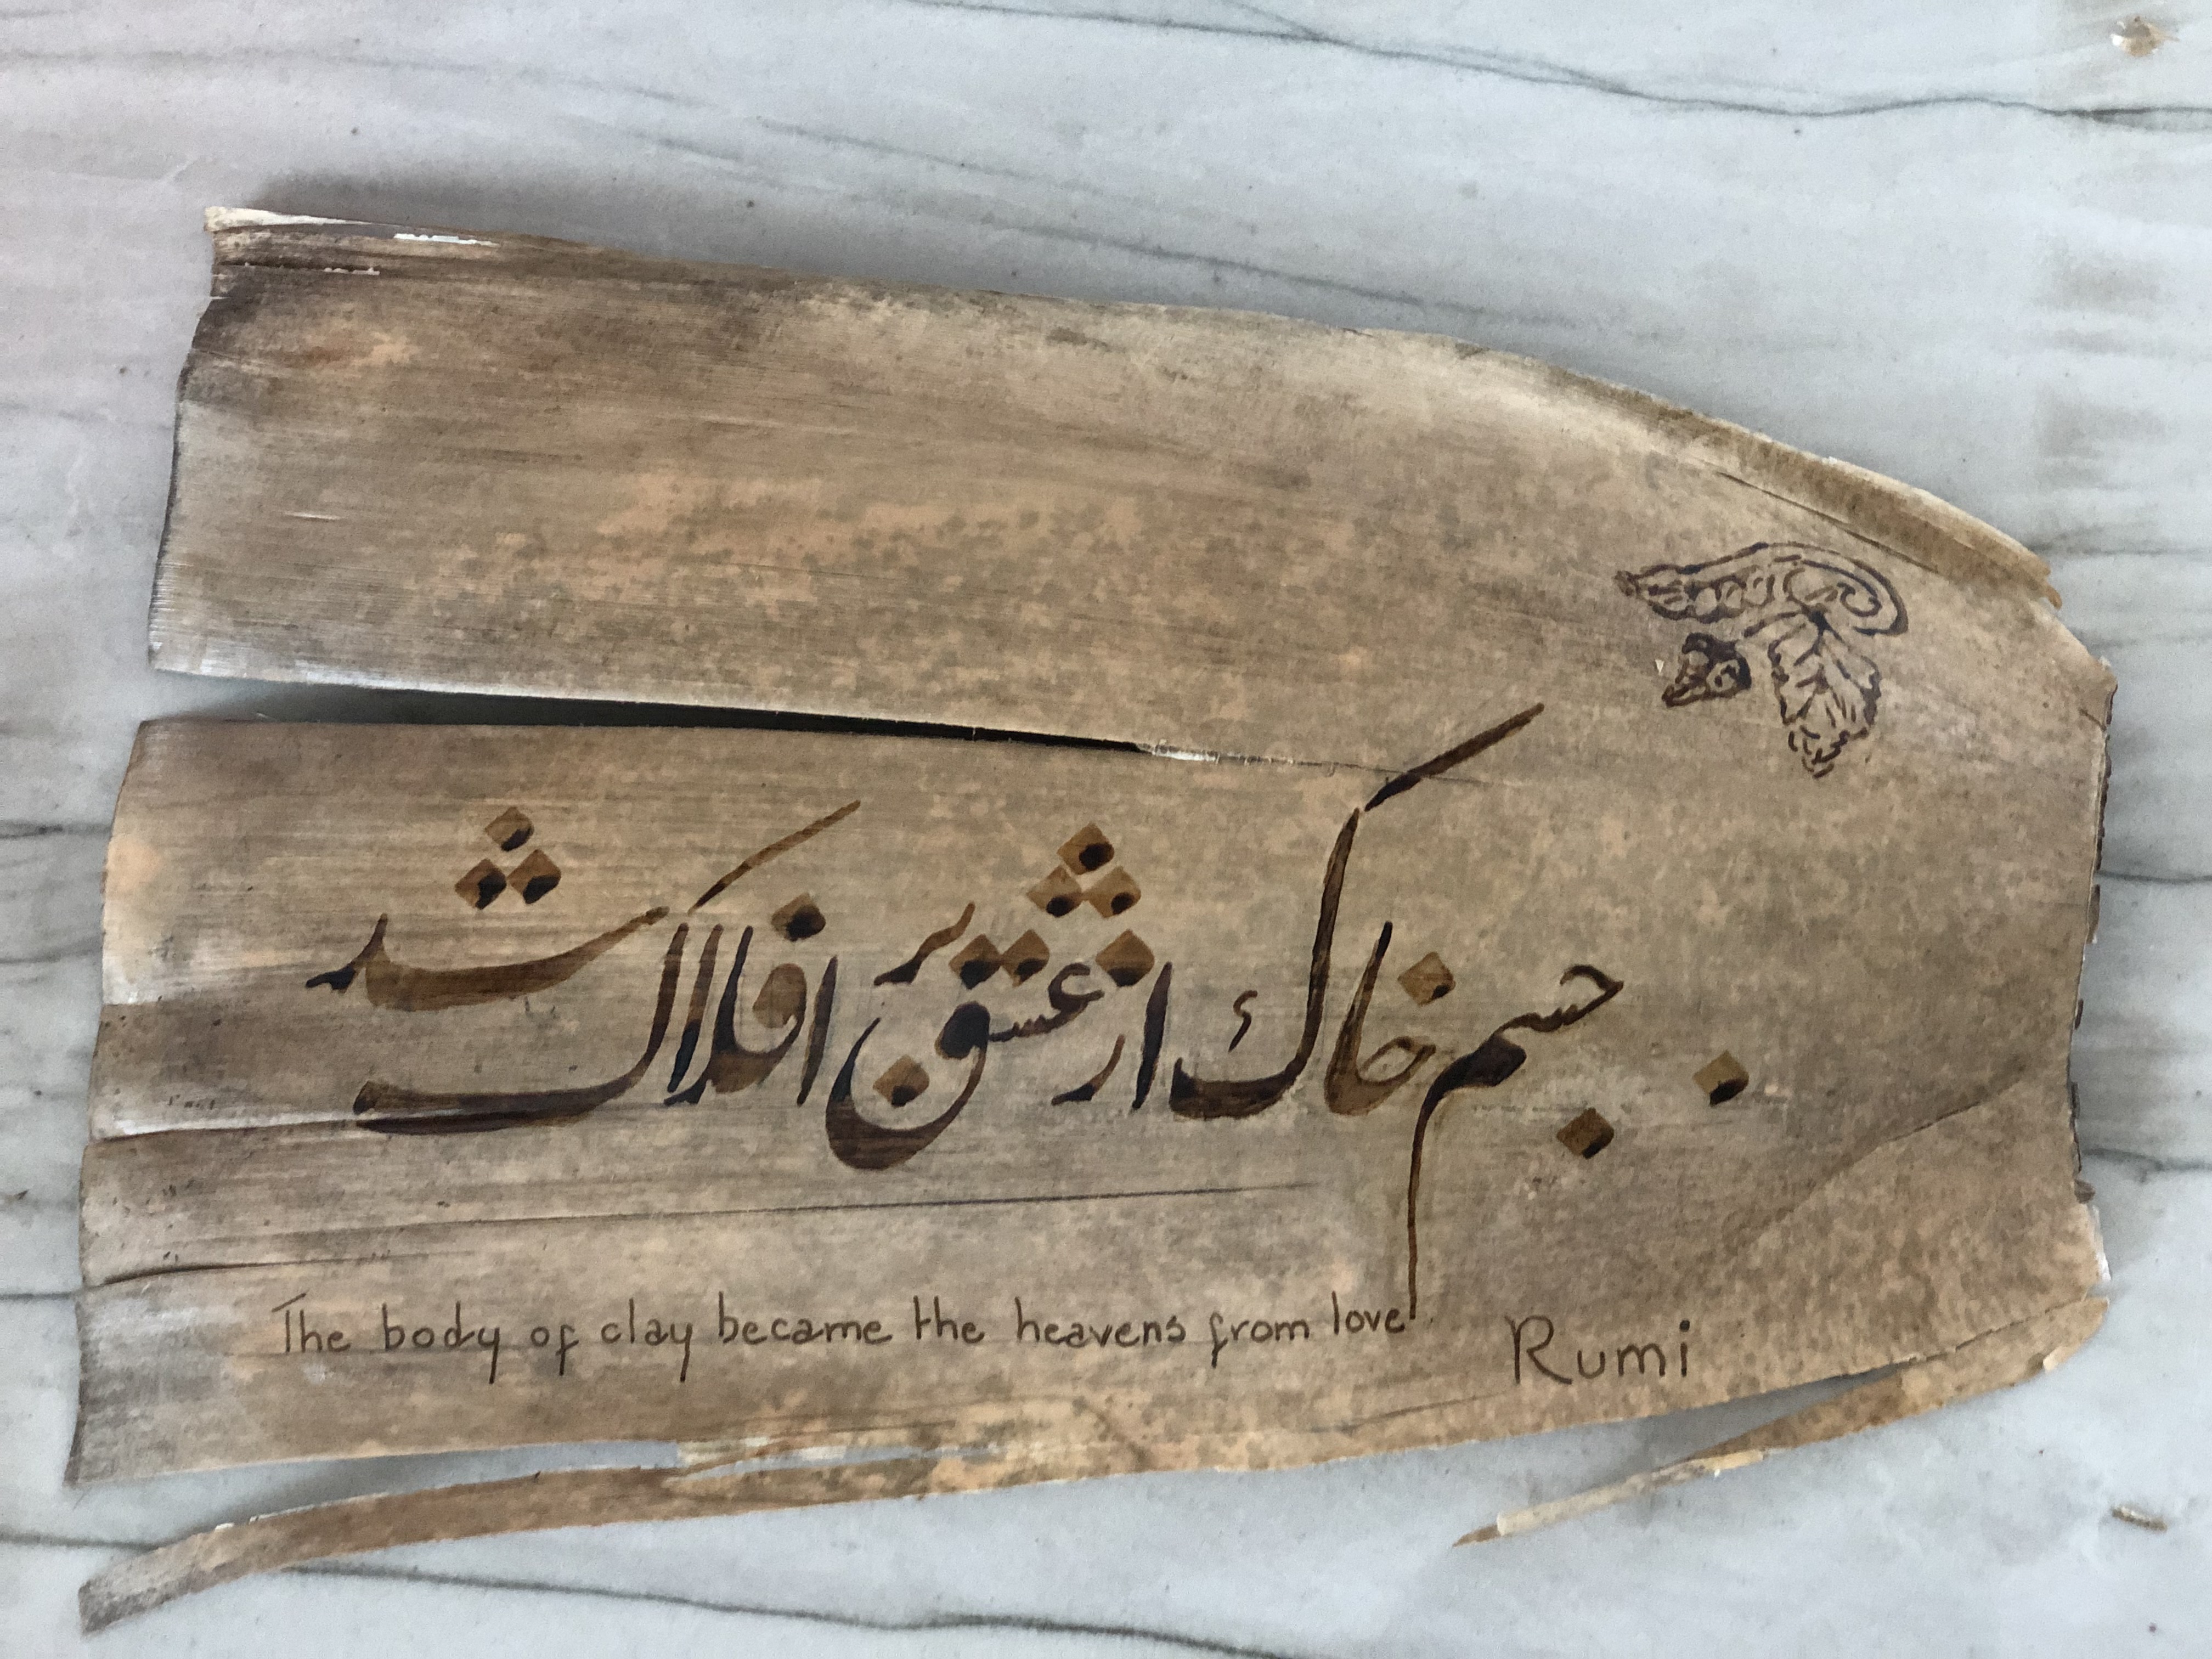 جسم خاک از عشق بر افلاک شد
The body of clay became the heavens from love
Rumi